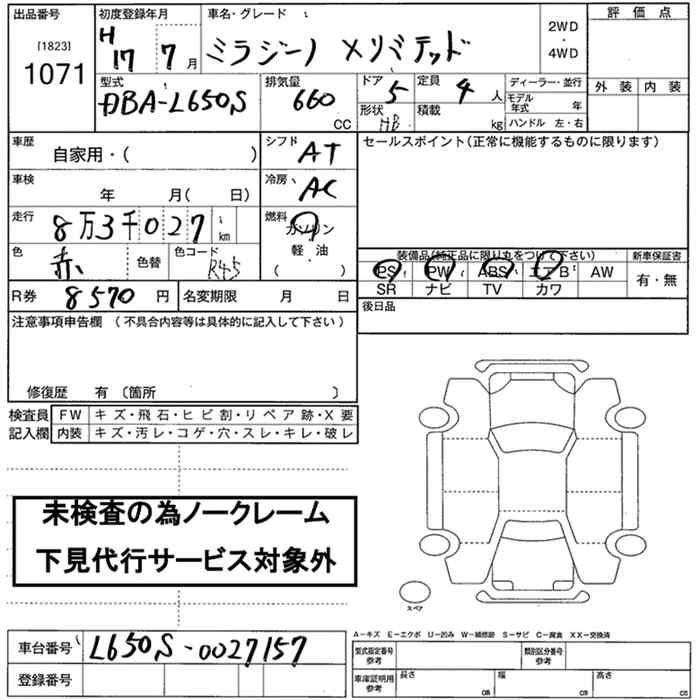 出品番号 初度登録年月 車名・グレード 評価点
[1823] 1071 H 17 7月 ミラジーノ Xリミテッド 2WD ・ 4WD
外装 内装
型式 DBA-L650S 排気量 660 CC ドア 5 定員 4 人 ディーラー・並行
形状 HB 積載 kg モデル年式 年
ハンドル 左・右
車歴 自家用・( ) シフト AT セールスポイント(正常に機能するものに限ります)
車検 年 月( 日) 冷房 AC
走行 8万3千027 km 燃料 ガソリン
軽・油
( )
色 赤 色替 色コード R45
装備品(純正品に限り丸をつけて下さい) 新車保証書
PS PW ABS エアB AW 有・無
SR ナビ TV カワ
R券 8570 円 名変期限 月 日 後日品
注意事項申告欄 (不具合内容等は具体的に記入して下さい)
修復歴 有 〔箇所 〕
検査員 FW キズ・飛石・ヒビ割・リペア跡・X要
記入欄 内装 キズ・汚レ・コゲ・穴・スレ・キレ・破レ
未検査の為ノークレーム
下見代行サービス対象外
スペア
A−キズ E−エクボ U−凹み W−補修跡 S−サビ C−腐食 XX−交換済
車台番号 L650S-0027157 型式指定番号 参考 類別区分番号 参考
登録番号 車庫証明用 参考 長さ cm 幅 cm 高さ cm